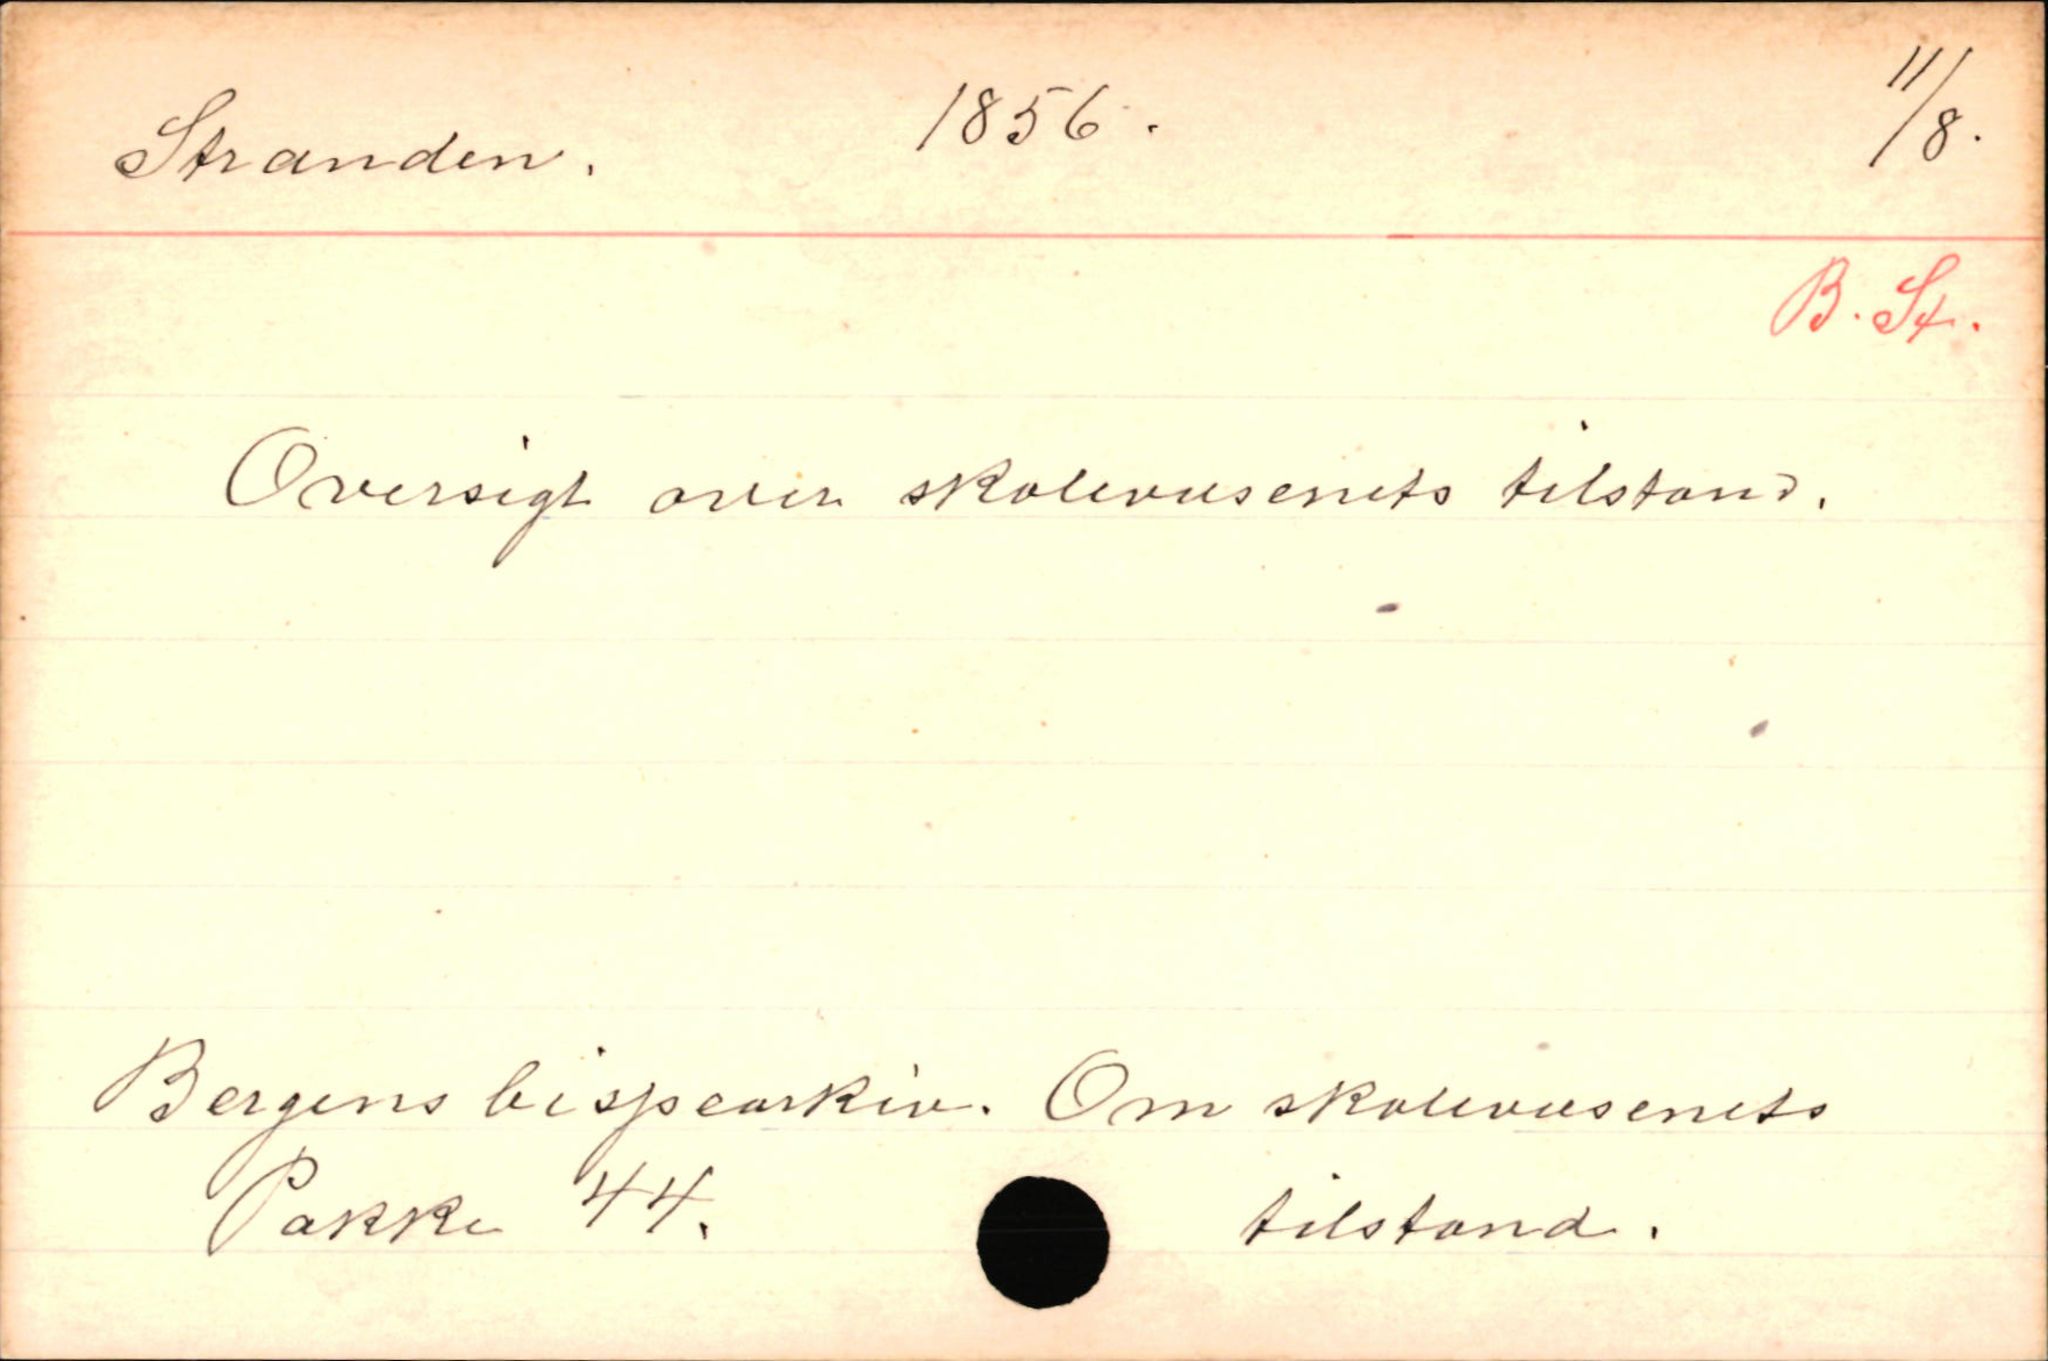 Stranden. 1856. 11/8.
B. St.
Oversigt over skolevæsenets tilstand.
Bergens bispearkiv. Om skolevæsenets
Pakke 44. tilstand.